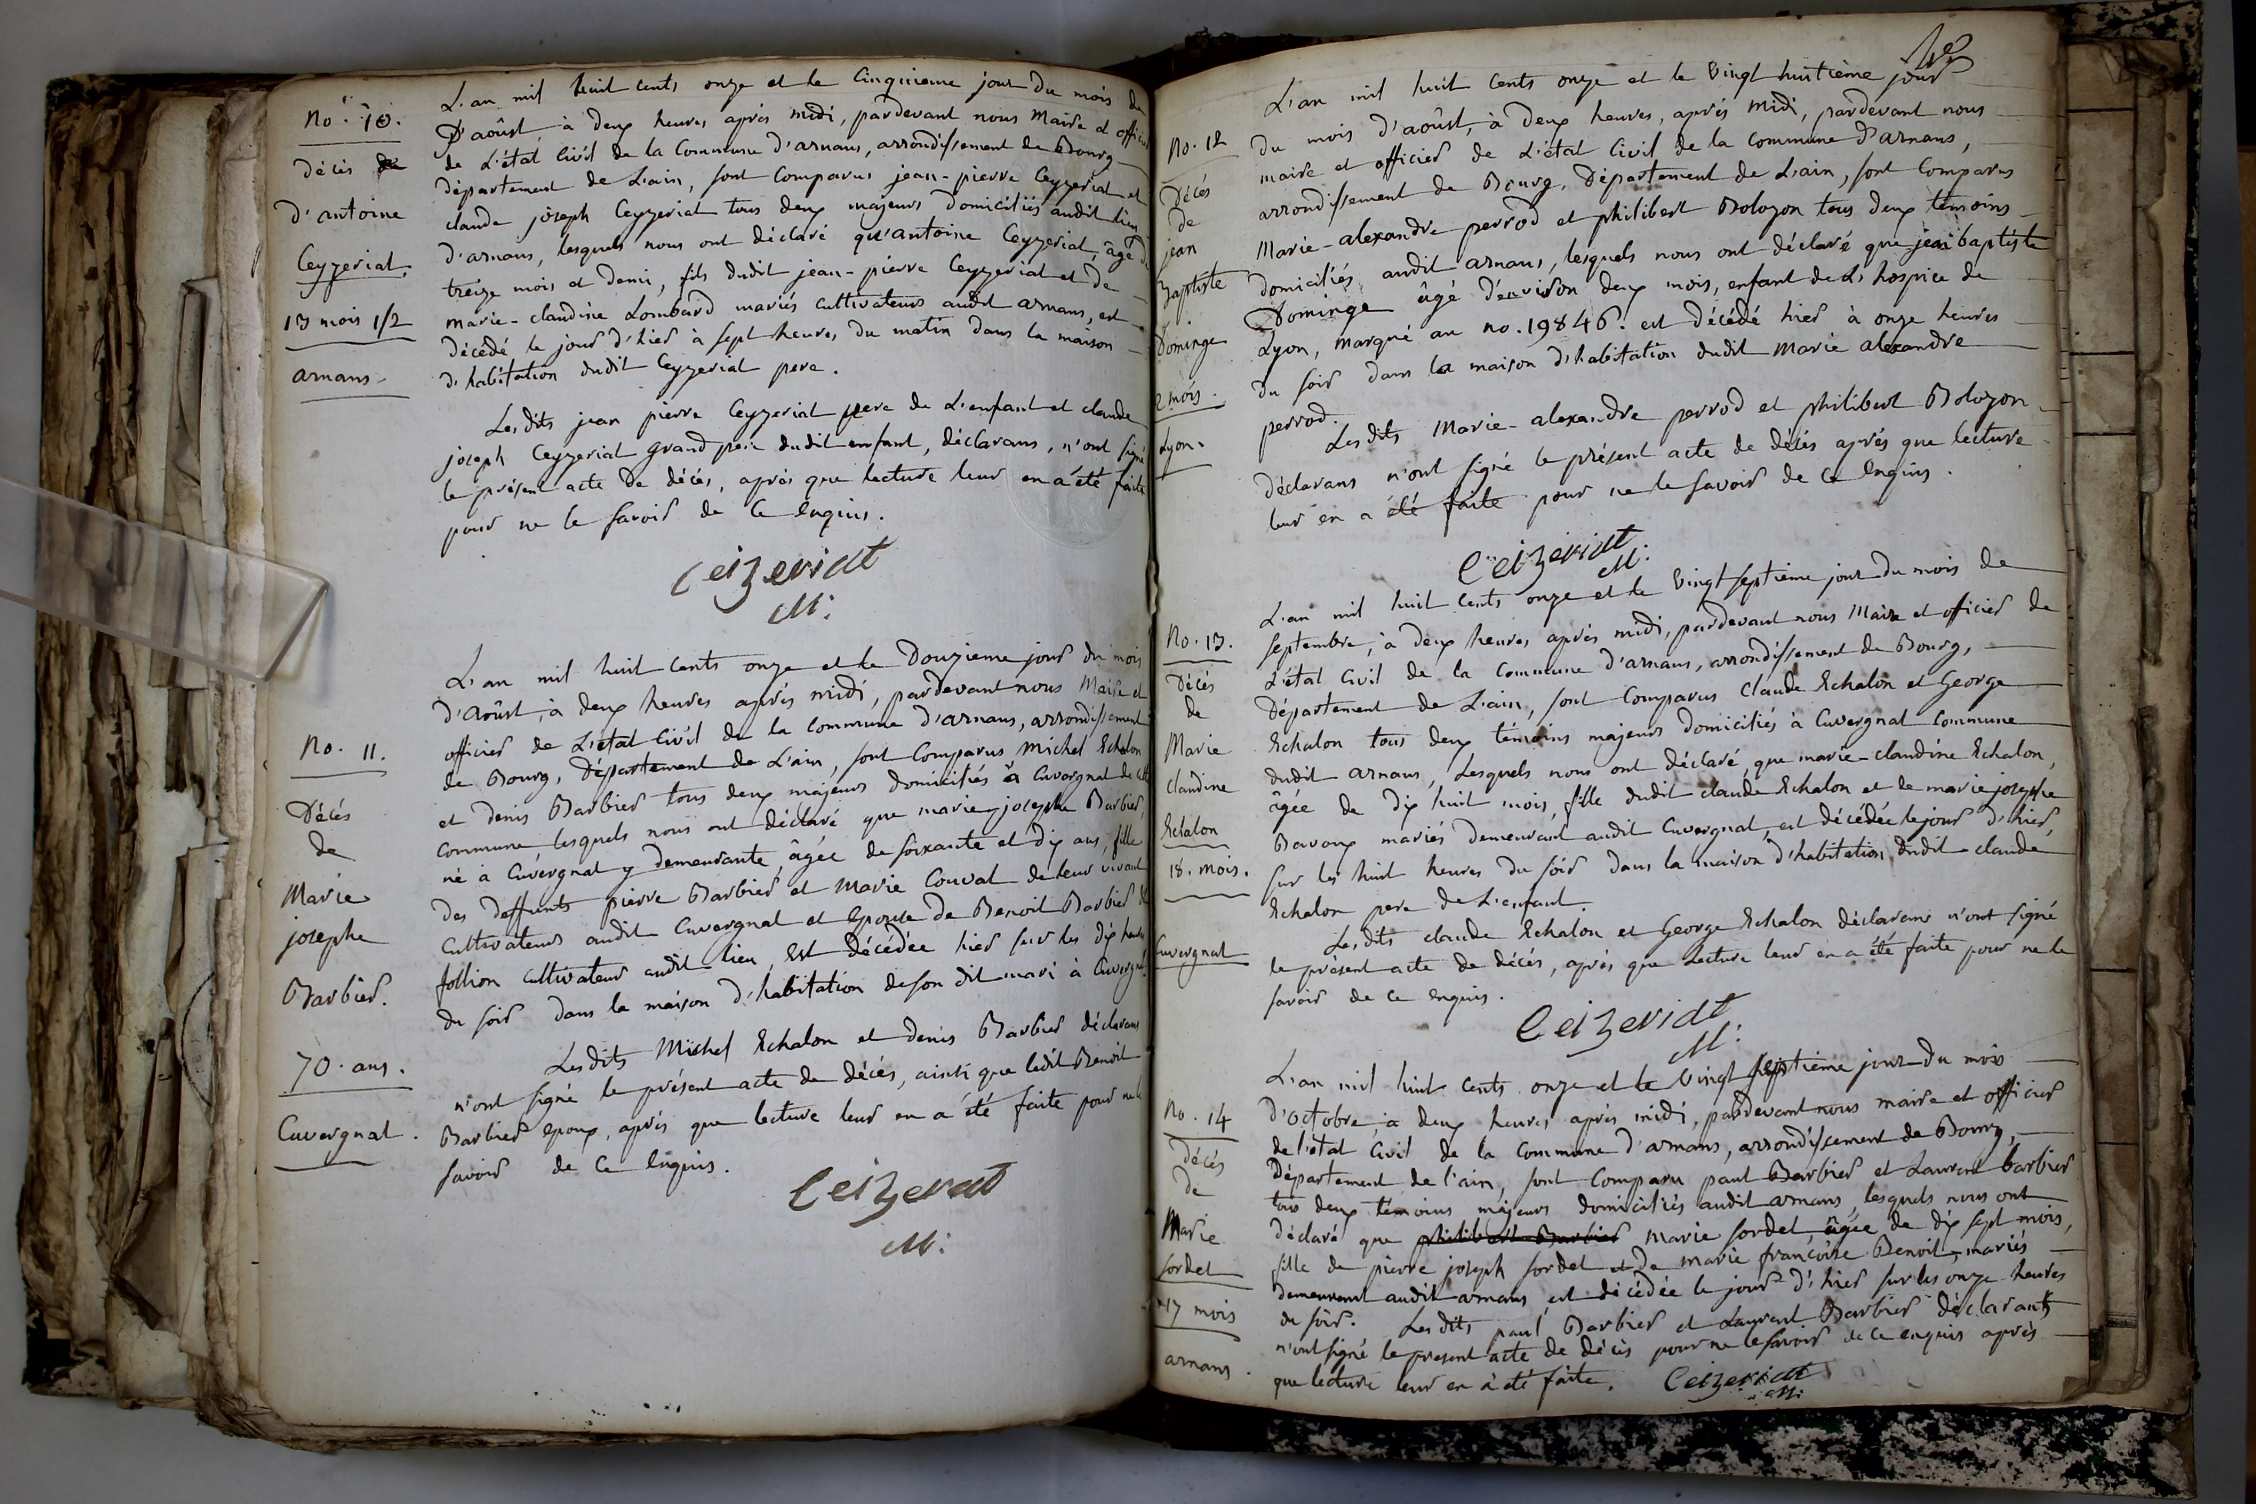 No. 10.
Décès de
d'antoine
Ceyzeriat.
13 mois 1/2
arnans.
L'an mil huit cents onze et le Cinquieme jour du mois de
D'août à deux heures après midi, pardevant nous Maire et officier
de L'état Civil de la Commune d'arnans, arrondissement de Bourg
département de L'ain, sont Comparus jean-pierre Ceyzeriat et
claude joseph Ceyzeriat tous deux majeurs domiciliés audit lieu
d'arnans, lesquels nous ont déclaré qu'antoine Ceyzeriat, âgé de
treize mois et demi, fils dudit jean-pierre Ceyzeriat et de
marie-claudine Lombard mariés cultivateurs audit arnans, est
décédé le jour d'hier à sept heures du matin dans la maison
d'habitation dudit Ceyzeriat pere.
Lesdits jean pierre Ceyzeriat pere de L'enfant et claude
joseph Ceyzeriat grand pere dudit enfant, déclarans, n'ont signé
le présent acte de décès, après que lecture leur en a été faite
pour ne le savoir de Ce Enquis.
Ceizeriat
M:
No. 11.
Décès
de
Marie
josephe
Barbier.
70. ans.
Cuvergnat.
L'an mil huit cents onze et le Douzieme jour du mois
d'Août, à deux heures après midi, pardevant nous Maire et
officier de L'état Civil de la commune d'arnans, arrondissement
de Bourg, Département de L'ain, sont Comparus Michel Echalon
et denis Barbier tous deux majeurs domiciliés à Cuvergnat de cette
commune, lesquels nous ont déclaré que marie-josephe Barbier,
né à Cuvergnat y demeurante, âgée de soixante et dix ans, fille
des deffunts pierre Barbier et Marie Couvat de leur vivant
Cultivateurs audit Cuvergnat et Epouse de Benoit Barbier dit
follion cultivateur audit lieu, Est décédée hier sur les dix heures
du soir dans la maison d'habitation de son dit mari à Cuvergnat.
Lesdits Michel Echalon et denis Barbier déclarans
n'ont signé le présent acte de décès, ainsi que ledit Benoit
Barbier epoux, après que lecture leur en a été faite pour ne le
savoir de Ce Enquis.
Ceizeriat
M:
No. 12
Décès
de
jean
Baptiste
Dominge
2 mois.
Lyon.
L'an mil huit Cents onze et le Vingt huitième jour
du mois d'août, à deux heures, après Midi, pardevant nous
maire et officier de L'état Civil de la commune d'arnans,
arrondissement de Bourg, Département de L'ain, sont Comparus
Marie-alexandre perrod et philibert Bolozon tous deux témoins
domiciliés audit arnans, lesquels nous ont déclaré que jean baptiste
Dominge âgé d'environ deux mois, enfant de L'hospice de
Lyon, marqué au no. 19846. est décédé hier à onze heures
du soir dans la maison d'habitation dudit Marie alexandre
perrod.
Lesdits Marie-alexandre perrod et philibert Bolozon
déclarans n'ont signé le présent acte de décès après que lecture
leur en a été faite pour ne le savoir de Ce Enquis.
Ceizeriat
M:
No. 13.
Décès
de
Marie
claudine
Echalon
18. mois.
Cuvergnat
L'an mil huit Cents onze et le Vingt septième jour du mois de
septembre, à deux heures après midi, pardevant nous Maire et officier de
L'état Civil de la Commune d'arnans, arrondissement de Bourg,
Département de L'ain, sont Comparus Claude Echalon et George
Echalon tous deux témoins majeurs domiciliés à Cuvergnat Commune
dudit arnans, Lesquels nous ont déclaré que marie-claudine Echalon,
âgée de dix huit mois, fille dudit claude Echalon et de marie josephe
Bavoux mariés demeurant audit Cuvergnat, est décédée le jour d'hier,
sur les huit heures du soir dans la maison d'habitation dudit claude
Echalon pere de L'enfant.
Lesdits claude Echalon et George Echalon déclarans n'ont signé
le présent acte de décès, après que Lecture leur en a été faite pour ne le
savoir de ce enquis.
Ceizeriat
M:
No. 14
Décès
de
Marie
sordet
17 mois
arnans.
L'an mil huit cents onze et le Vingt septième jour du mois
d'Octobre, à deux heures après midi, pardevant nous maire et officier
de l'état Civil de la Commune d'arnans, arrondissement de Bourg,
Département de l'ain, sont Comparu paul Barbier et Laurent barbier
tous deux témoins majeurs domiciliés audit arnans, lesquels nous ont
déclaré que philibert Barbier Marie sordet, âgée de dix sept mois,
fille de pierre joseph sordet et de marie françoise Benoit, mariés
demeurant audit arnans, est décédée le jour d'hier sur les onze heures
du soir. Lesdits paul Barbier et Laurent Barbier déclarants
n'ont signé le present acte de décès pour ne le savoir de ce enquis après
que lecture leur en a été faite. Ceizeriat
M: